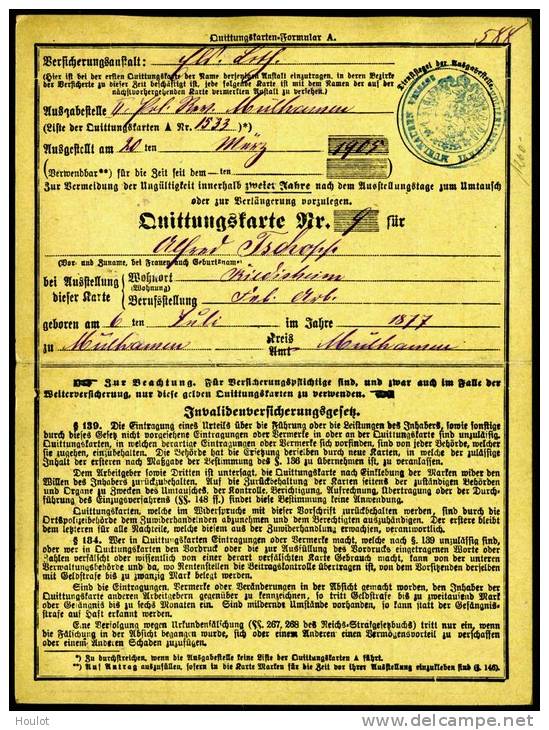 Quittungskarten-Formular A.
588
Versicherungsanstalt: Els. Loth.
(Hier ist bei der ersten Quittungskarte der Name derjenigen Anstalt einzutragen, in deren Bezirke
der Versicherte zu dieser Zeit beschäftigt ist, jede folgende Karte ist mit dem Namen der auf der
nächstvorhergehenden Karte vermerkten Anstalt zu versehen.)
Dienstsiegel der Ausgabestelle.
Ausgabestelle II Pol. Rev. Mülhausen
(Liste der Quittungskarten A Nr. 1533 )*)
Ausgestellt am 20 ten März 1905
(Verwendbar**) für die Zeit seit dem ten )
Zur Vermeidung der Ungültigkeit innerhalb zweier Jahre nach dem Ausstellungstage zum Umtausch
oder zur Verlängerung vorzulegen.
Quittungskarte Nr. 9 für
Alfred Tschopp
(Vor- und Zuname, bei Frauen auch Geburtsname)
bei Ausstellung dieser Karte
Wohnort Riedisheim
(Wohnung)
Berufsstellung Fab. Arb.
geboren am 6 ten Juli im Jahre 1877
zu Mülhausen Kreis Amt Mülhausen
Zur Beachtung. Für Versicherungspflichtige sind, und zwar auch im Falle der
Weiterversicherung, nur diese gelben Quittungskarten zu verwenden.
Invalidenversicherungsgesetz.
§ 139. Die Eintragung eines Urteils über die Führung oder die Leistungen des Inhabers, sowie sonstige
durch dieses Gesetz nicht vorgesehene Eintragungen oder Vermerke in oder an der Quittungskarte sind unzulässig.
Quittungskarten, in welchen derartige Eintragungen oder Vermerke sich vorfinden, sind von jeder Behörde, welcher
sie zugehen, einzubehalten. Die Behörde hat die Ersetzung derselben durch neue Karten, in welche der zulässige
Inhalt der ersteren nach Maßgabe der Bestimmung des § 136 zu übernehmen ist, zu veranlassen.
Dem Arbeitgeber sowie Dritten ist untersagt, die Quittungskarte nach Einklebung der Marken wider den
Willen des Inhabers zurückzubehalten. Auf die Zurückbehaltung der Karten seitens der zuständigen Behörden
und Organe zu Zwecken des Umtausches, der Kontrolle, Berichtigung, Aufrechnung, Übertragung oder der Durch-
führung des Einzugsverfahrens (§§. 148 ff.) findet diese Bestimmung keine Anwendung.
Quittungskarten, welche im Widerspruche mit dieser Vorschrift zurückbehalten werden, sind durch die
Ortspolizeibehörde dem Zuwiderhandelnden abzunehmen und dem Berechtigten auszuhändigen. Der erstere bleibt
dem letzteren für alle Nachteile, welche diesem aus der Zuwiderhandlung erwachsen, verantwortlich.
§ 184. Wer in Quittungskarten Eintragungen oder Vermerke macht, welche nach § 139 unzulässig sind,
oder wer in Quittungskarten den Vordruck oder die zur Ausfüllung des Vordrucks eingetragenen Worte oder
Zahlen verfälscht oder wissentlich von einer derart verfälschten Karte Gebrauch macht, kann von der unteren
Verwaltungsbehörde und da, wo Rentenstellen die Beitragskontrolle übertragen ist, von dem Vorsitzenden derselben
mit Geldstrafe bis zu zwanzig Mark belegt werden.
Sind die Eintragungen, Vermerke oder Veränderungen in der Absicht gemacht worden, den Inhaber der
Quittungskarte anderen Arbeitgebern gegenüber zu kennzeichnen, so tritt Geldstrafe bis zu zweitausend Mark
oder Gefängnis bis zu sechs Monaten ein. Sind mildernde Umstände vorhanden, so kann statt der Gefängnis-
strafe auf Haft erkannt werden.
Eine Verfolgung wegen Urkundenfälschung (§§. 267, 268 des Reichs-Strafgesetzbuchs) tritt nur ein, wenn
die Fälschung in der Absicht begangen wurde, sich oder einem Anderen einen Vermögensvorteil zu verschaffen
oder einem Anderen Schaden zuzufügen.
*) Zu durchstreichen, wenn die Ausgabestelle keine Liste der Quittungskarten A führt.
**) Auf Antrag auszufüllen, sofern in die Karte Marken für die Zeit vor ihrer Ausstellung einzukleben sind (§. 146).
Houlot
delcampe.net